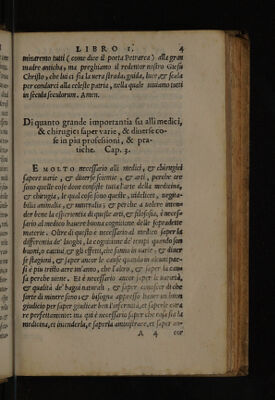 LIBRO I. 4
minaremo tutti (come dice il poeta Petrarca) alla gran
madre antica, ma preghiamo il redentor nostro Giesù
Christo, che lui ci sia la vera strada, guida, luce, & scala
per condurci alla celeste patria, nella quale viviamo tutti
in secula seculorum. Amen.
Di quanto grande importantia sia alli medici,
& chirugici saper varie, & diuerse co-
se in più professioni, & pra-
tiche. Cap. 3.
E MOLTO necessario alli medici, & chirugici
saper uarie, & diuerse scientie, & arti, perche tre
sono quelle cose doue consiste tutta l'arte della medicina,
& chirugia, le qual cose sono queste, uidelicet, uegeta-
bilia animalia, & mineralia; & perche a uolere inten-
der bene la esperientia di queste arti, & filosofia, è neces-
sario al medico hauere buona cognitione delle sopradette
materie. Oltre di questo è necessario al medico saper la
differentia de' luoghi, la cognitione de' tempi quando son
buoni, o cattiui, & gli effetti, che fanno in uarie, & diuer
se stagioni, & saper ancor le cause quando in alcuni pae-
si è piu tristo aere un'anno, che l'altro, & saper la cau-
sa perche uiene. Et è necessario ancor saper le uirtù,
& qualità de' bagni naturali, & saper conoscer di che
sorte di minere sono; & bisogna appresso hauer un buon
giudicio per saper giudicar ben l'infermità, & saperle cura
re perfettamente: ma qui è necessario saper che cosa sia la
medicina, et intenderla, e saperla aministrare, et saper an-
A 4 cor